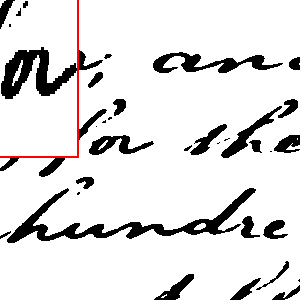 for, and
for the
hundre